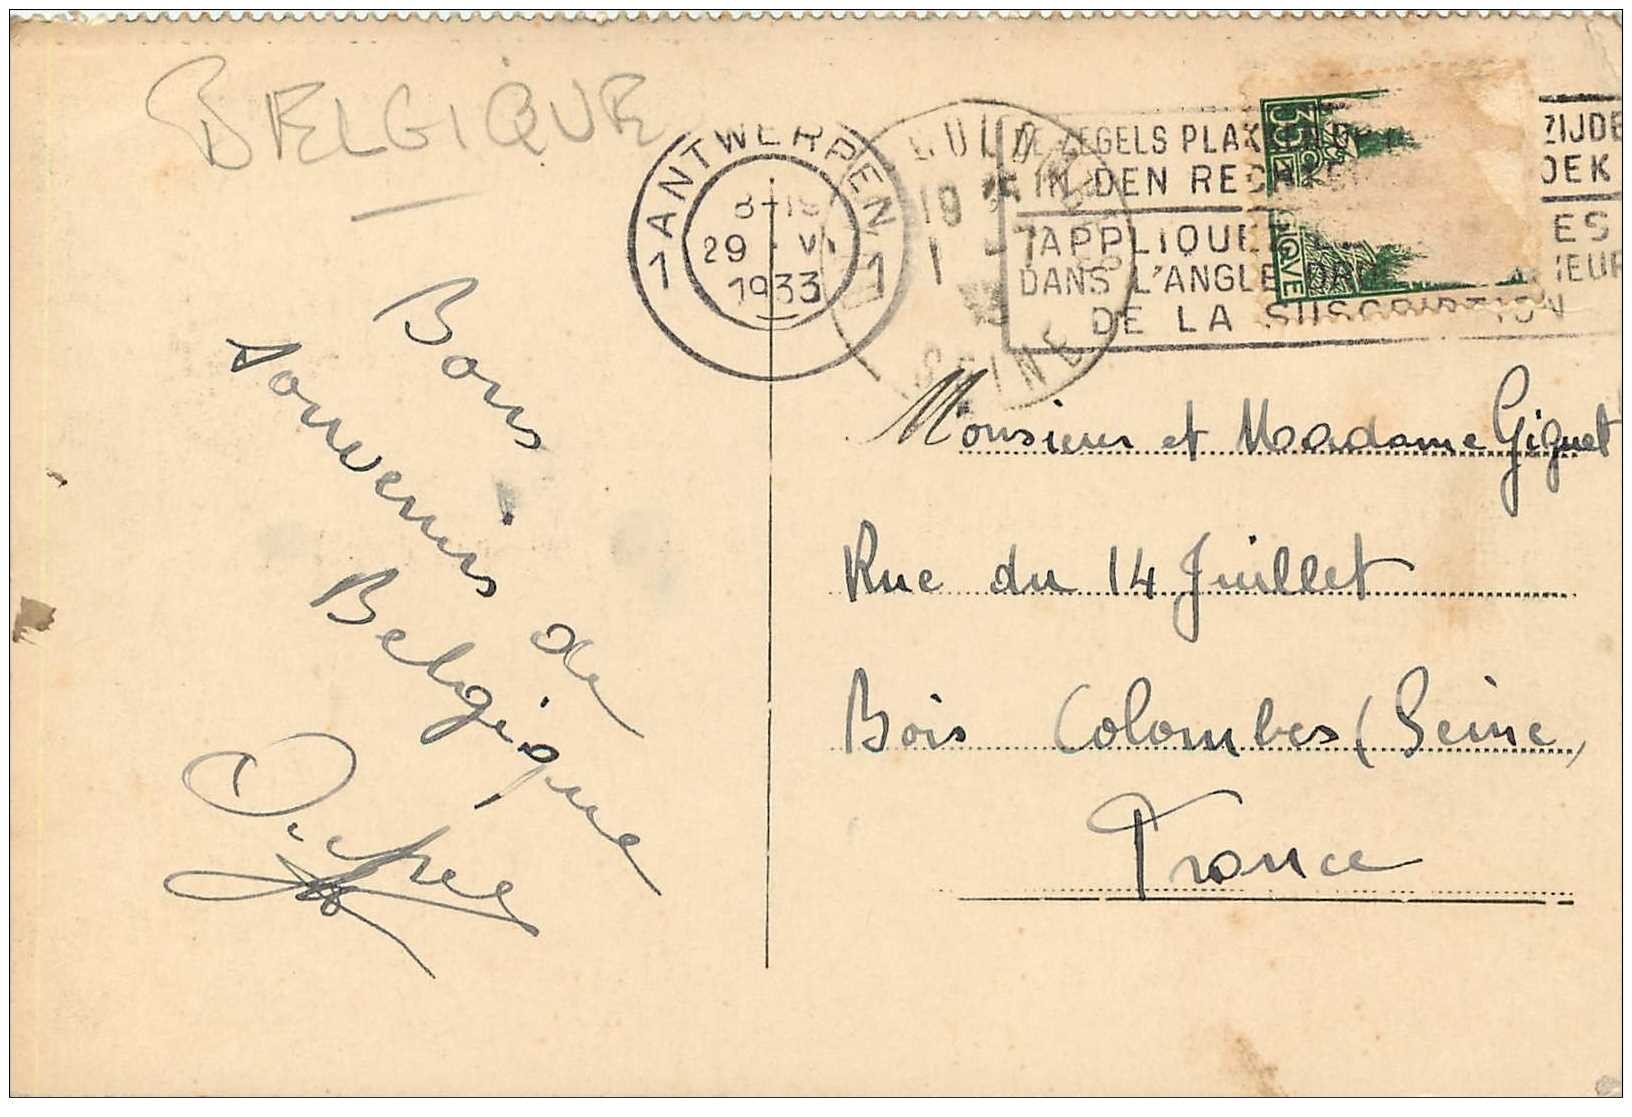 BELGIQUE
1 ANTWERPEN 1
29 VI
1933
DE ZEGELS ZIJDE
IN DEN OEK
APPLIQUE ES
DANS L'ANGLE IEUR
DE LA SUSCRIPTION
35 C
SEINE
Bons
souvenirs de
Belgique
Monsieur et Madame Giguet
Rue du 14 Juillet
Bois Colombes (Seine,
France